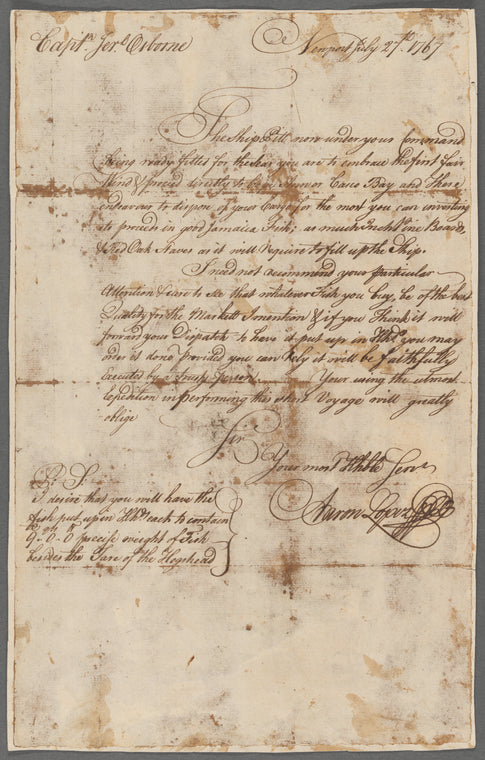 Capt. Jer.l Osborne Newport July 27th. 1767
The Ship Pitt now under your Command
being ready fitted for the Sea you are to embrace the first fair
Wind & proceed directly to or Casco Bay and there
endeavour to dispose of your Cargo for the most you can investing
its proceeds in good Jamaica Fish, as much Inch Pine Boards,
& Red Oak Staves as it will require to fill up the Ship.
I need not recommend your particular
Attention & care to see that whatever Fish you buy, be of the best
Quality for the Markett I mention & if you think it will
forward your Dispatch to have it put up in Hhds you may
order it done provided you can rely it will be faithfully
Executed by a trusty Person. Your using the utmost
Expedition in performing this short Voyage will greatly
oblige
Sir
Your most Hble Servt
Aaron Lopez
P. S.
I desire that you will have the
fish put up in Hhds each to contain
9. 0. 0 precise weight of Fish
besides the Tare of the Hogshead